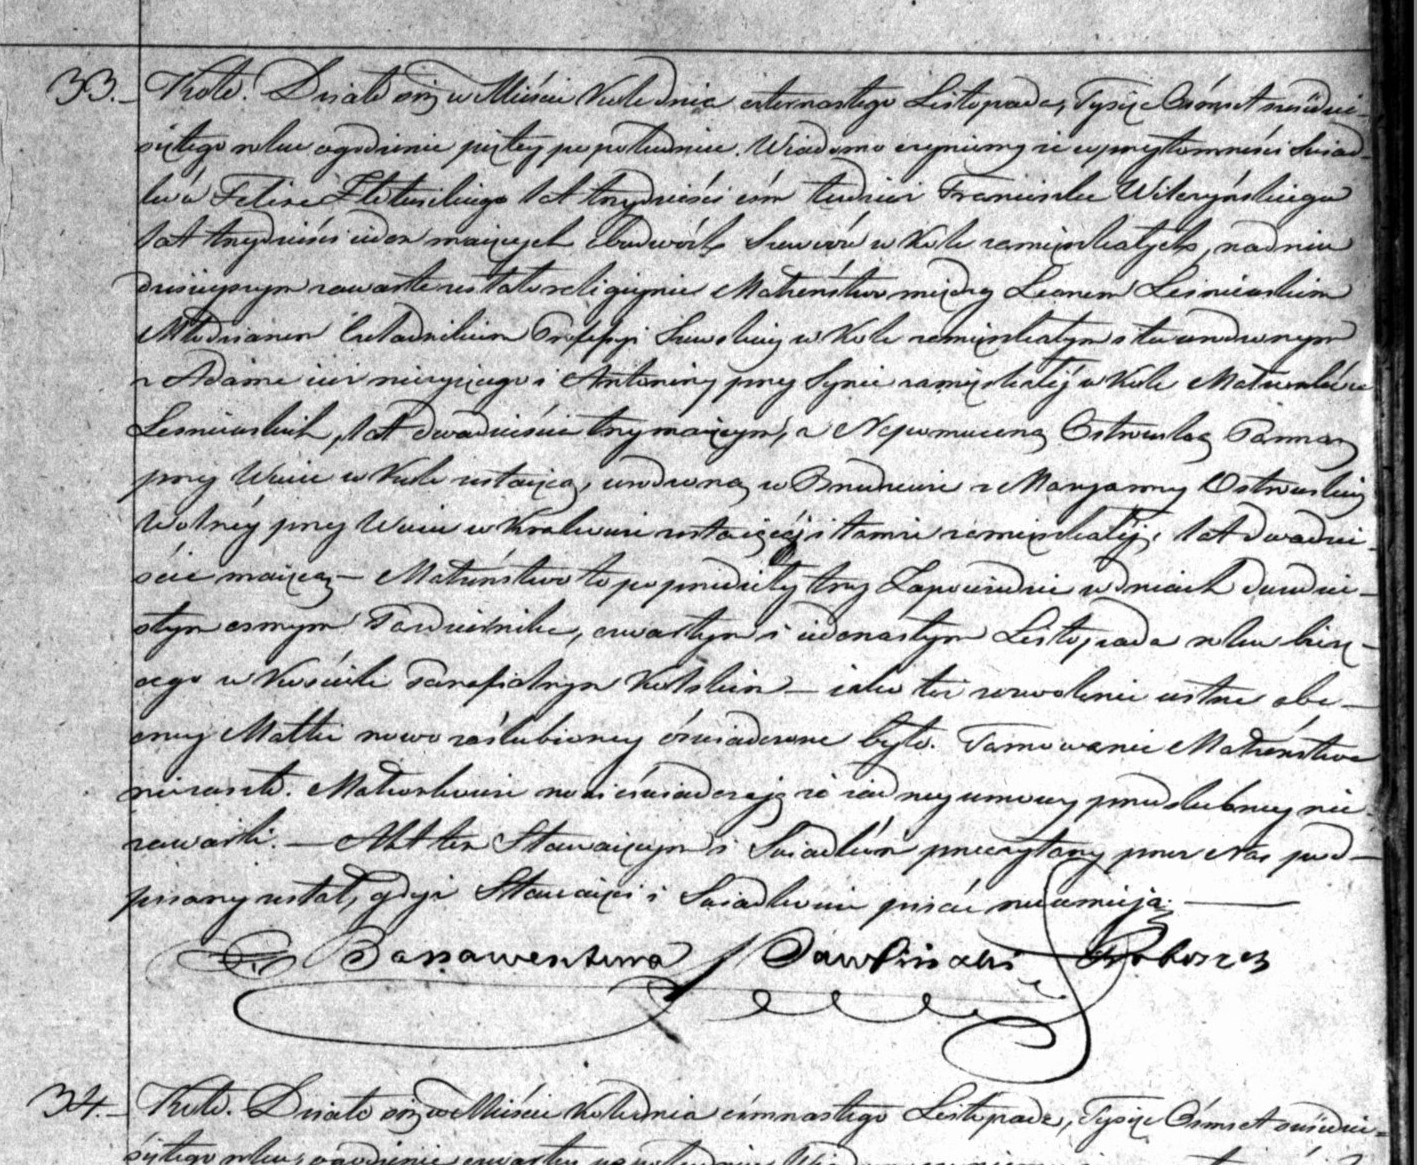 33. Koło. Działo się w Mieście Kole dnia czternastego Listopada, Tysiąc Ośmset sześćdzie-
siątego roku o godzinie piątey po południu. Wiadomo czyniemy iż w przytomności Świad-
ków Felixa lat trzydzieści óśm tudzież Franciszka Wilczyńskiego
lat trzydzieści ieden maiących obudwóch Szewców w Kole zamięszkałych, na dniu
dzisieyszym zawarte zostało religijnie Małżeństwo między Leonem Leśniewskim
Młodzianem Czeladnikiem Profesyi Szewskiey w Kole zamięszkałym i tu urodzonym
z Adama iuż nieżyiącego i Antoniny przy Synie zamięszkałéj w Kole Małżonków
Leśniewskich, lat dwadzieścia trzy maiącym, a Nepomuceną Ostrowską Panną
przy Wuiu w Kole zostaiącą, urodzoną w Brudzewie z Maryanny Ostrowskiey
Wolnéy przy Wuiu w zostaiącéj i tamże zamięszkałéj, lat dwadzie-
ścia maiącą — Małżeństwo to poprzedziły trzy Zapowiedzie w dniach dwudzie-
stym osmym Października, czwartym i iedenastym Listopada roku bieżą-
cego w Kościele Parafialnym Kolskim — iako też zezwolenie ustne obe-
cney Matki nowo zaślubioney oświadczone było. Tamowanie Małżeństwa
nie zaszło. Małżonkowie nowi oświadczają iż żadney umowy przedślubney nie
zawarli. — Akt ten Stawaiącym i Świadkom przeczytany przez Nas pod-
pisany został, gdyż Stawaiący i Świadkowie pisać nie umieją. —
X. Bonawentura Pawliński Proboszcz
34. Koło. Działo się w Mieście Kole dnia ośmnastego Listopada, Tysiąc Ośmset sześćdzie-
siątego roku, o godzinie czwartey po południu